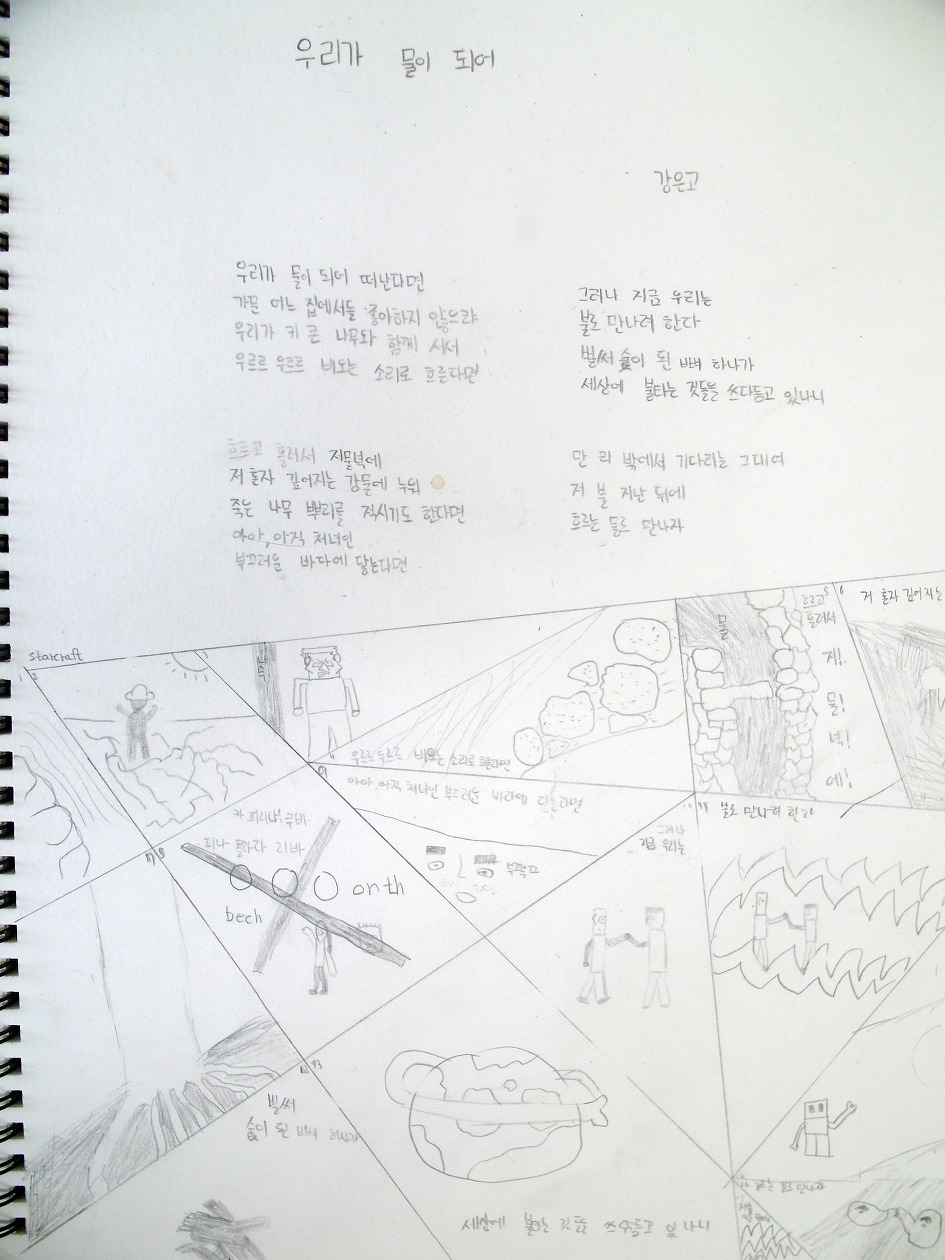 우리가 물이 되어
강은고
우리가 물이 되어 떠난다면
가문 어느 집에서들 좋아하지 않으랴
우리가 키 큰 나무와 함께 서서
우르르 우르르 비오는 소리로 흐른다면
흐르고 흘러서 저물녘에
저 혼자 깊어지는 강물에 누워
죽는 나무 뿌리를 적시기도 한다면
아아, 아직 처녀인
부끄러운 바다에 닿는다면
그러나 지금 우리는
불로 만나려 한다
벌써 숯이 된 뼈 하나가
세상에 불타는 것들을 쓰다듬고 있나니
만 리 밖에서 기다리는 그대여
저 불 지난 뒤에
흐르는 물로 만나자
starcraft
우르르 우르르 비오는 소리로 흐른다면
물
흐르고
흘러서
저!
물!
녁!
에!
6
저 혼자 깊어지는
아아, 아직 처녀인 부끄러운 바다에 닿는다면
부끄
onth
bech
그러나
지금 우리는
불로 만나려 한다
벌써
숯이 된 뼈 하나가
13
세상에 불타는 것들 쓰다듬고 있나니
16 흐르는 물로 만나자